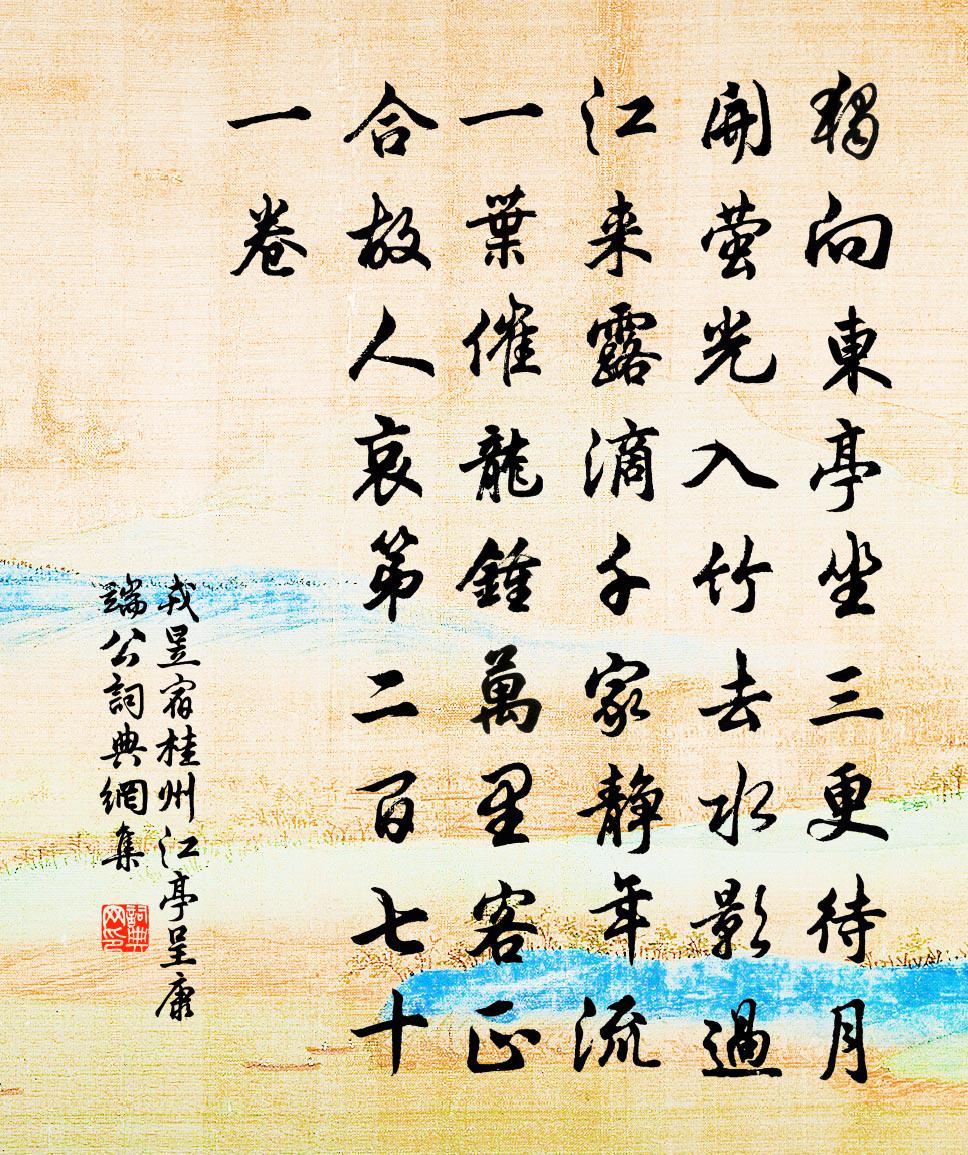 獨向東亭坐三更待月
開螢光入竹去水影過
江来露滴千家靜年流
一葉催龍鍾萬里客正
合故人哀第二百七十
一卷
戎昱宿桂州江亭呈康
端公詞典網集
詞典网印